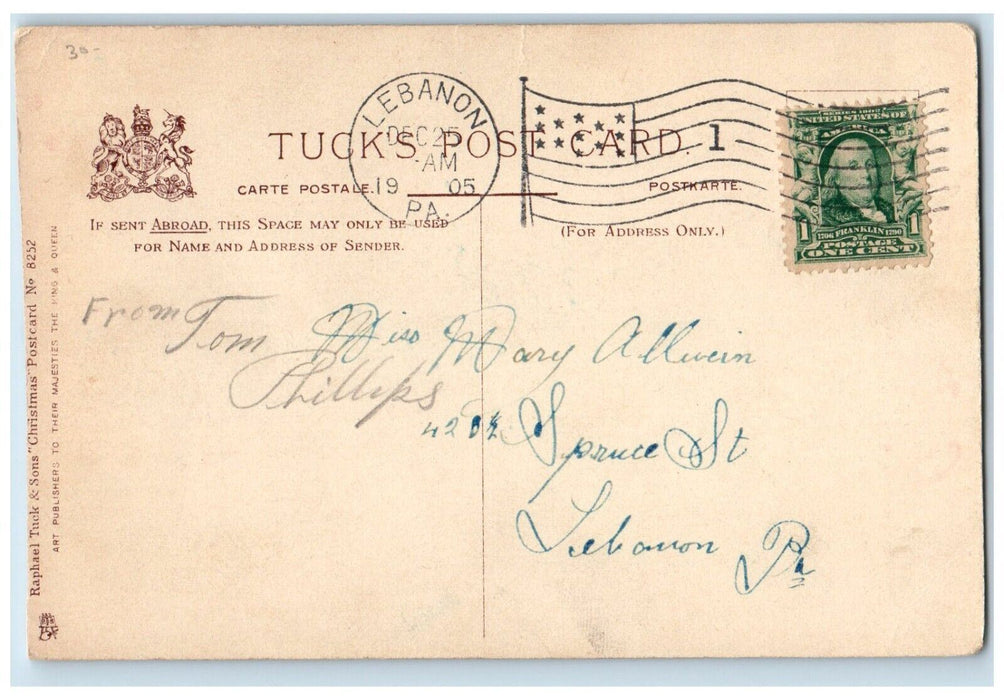 30-
LEBANON
DEC 25
-AM
19 05
PA.
TUCK'S POST CARD.
1
CARTE POSTALE.
POSTKARTE.
IF SENT ABROAD, THIS SPACE MAY ONLY BE USED
FOR NAME AND ADDRESS OF SENDER.
(FOR ADDRESS ONLY.)
SERIES 1902
UNITED STATES OF
AMERICA
1706 FRANKLIN 1790
1 POSTAGE 1
ONE CENT
From Tom
Phillips
Miss Mary Allwein
420½ Spruce St
Lebanon Pa
Raphael Tuck & Sons "Christmas" Postcard No 8252
ART PUBLISHERS TO THEIR MAJESTIES THE KING & QUEEN